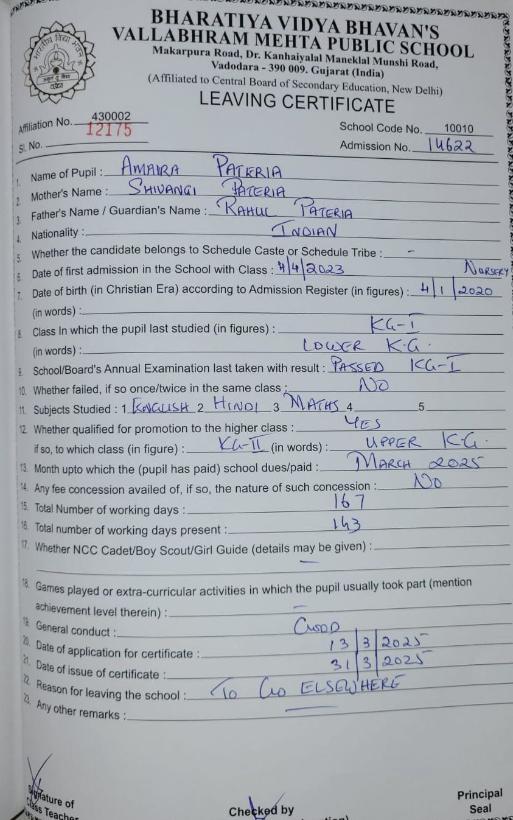 BHARATIYA VIDYA BHAVAN'S
VALLABHRAM MEHTA PUBLIC SCHOOL
Makarpura Road, Dr. Kanhaiyalal Maneklal Munshi Road,
Vadodara - 390 009. Gujarat (India)
(Affiliated to Central Board of Secondary Education, New Delhi)
LEAVING CERTIFICATE
Affiliation No. 430002 School Code No. 10010
Sl. No. 12175 Admission No. 14622
1. Name of Pupil : AMAIRA PATERIA
2. Mother's Name : SHIVANGI PATERIA
3. Father's Name / Guardian's Name : RAHUL PATERIA
4. Nationality : INDIAN
5. Whether the candidate belongs to Schedule Caste or Schedule Tribe : -
6. Date of first admission in the School with Class : 4/4/2023 NURSERY
7. Date of birth (in Christian Era) according to Admission Register (in figures) : 4/1/2020
(in words) :
8. Class In which the pupil last studied (in figures) : KG-I
(in words) : LOWER K.G.
9. School/Board's Annual Examination last taken with result : PASSED KG-I
10. Whether failed, if so once/twice in the same class : NO
11. Subjects Studied : 1 ENGLISH 2 HINDI 3 MATHS 4 5
12. Whether qualified for promotion to the higher class : YES
if so, to which class (in figure) : KG-II (in words) : UPPER K.G.
13. Month upto which the (pupil has paid) school dues/paid : MARCH 2025
14. Any fee concession availed of, if so, the nature of such concession : NO
15. Total Number of working days : 167
16. Total number of working days present : 143
17. Whether NCC Cadet/Boy Scout/Girl Guide (details may be given) : —
18. Games played or extra-curricular activities in which the pupil usually took part (mention
achievement level therein) : —
19. General conduct : GOOD
20. Date of application for certificate : 13/3/2025
21. Date of issue of certificate : 31/3/2025
22. Reason for leaving the school : TO GO ELSEWHERE
23. Any other remarks : —
Signature of Principal
Class Teacher Checked by Seal